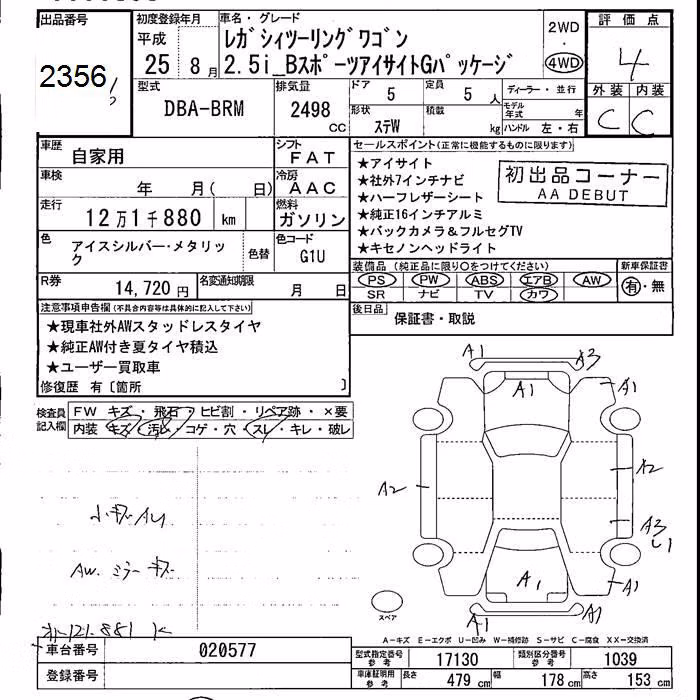 出品番号
2356
初度登録年月
平成
25年 8月
車名・グレード
レガシィツーリングワゴン
2.5i_BスポーツアイサイトGパッケージ
2WD
・
4WD
評価点
4
外装 内装
C C
型式
DBA-BRM
排気量
2498
CC
ドア 5
定員 5 人
形状
ステW
積載
kg
ディーラー・並行
モデル年式 年
ハンドル 左・右
車歴
自家用
シフト
FAT
車検
年 月( 日)
冷房
AAC
走行
12万1千880 km
燃料
ガソリン
色
アイスシルバー・メタリック
色替
色コード
G1U
R券
14,720円
名変通知期限
月 日
セールスポイント(正常に機能するものに限ります)
★アイサイト
★社外7インチナビ
★ハーフレザーシート
★純正16インチアルミ
★バックカメラ&フルセグTV
★キセノンヘッドライト
初出品コーナー
AA DEBUT
装備品(純正品に限り○をつけてください)
PS PW ABS エアB AW
SR ナビ TV カワ
新車保証書
有・無
後日品
保証書・取説
注意事項申告欄(不具合内容等は具体的に記入して下さい)
★現車社外AWスタッドレスタイヤ
★純正AW付き夏タイヤ積込
★ユーザー買取車
修復歴 有〔箇所 〕
検査員記入欄
FW キズ・飛石・ヒビ割・リペア跡・×要
内装 キズ・汚レ・コゲ・穴・スレ・キレ・破レ
小キズAU
AW. ミラーキズ
121.881 K
A1
A3
A1
A1
A2
A2
A3
A1
A1
A1
A1
スペア
A-キズ E-エクボ U-凹み W-補修跡 S-サビ C-腐食 XX-交換済
車台番号
020577
登録番号
型式指定番号 参考
17130
類別区分番号 参考
1039
車庫証明用 参考
長さ 479 cm
幅 178 cm
高さ 153 cm